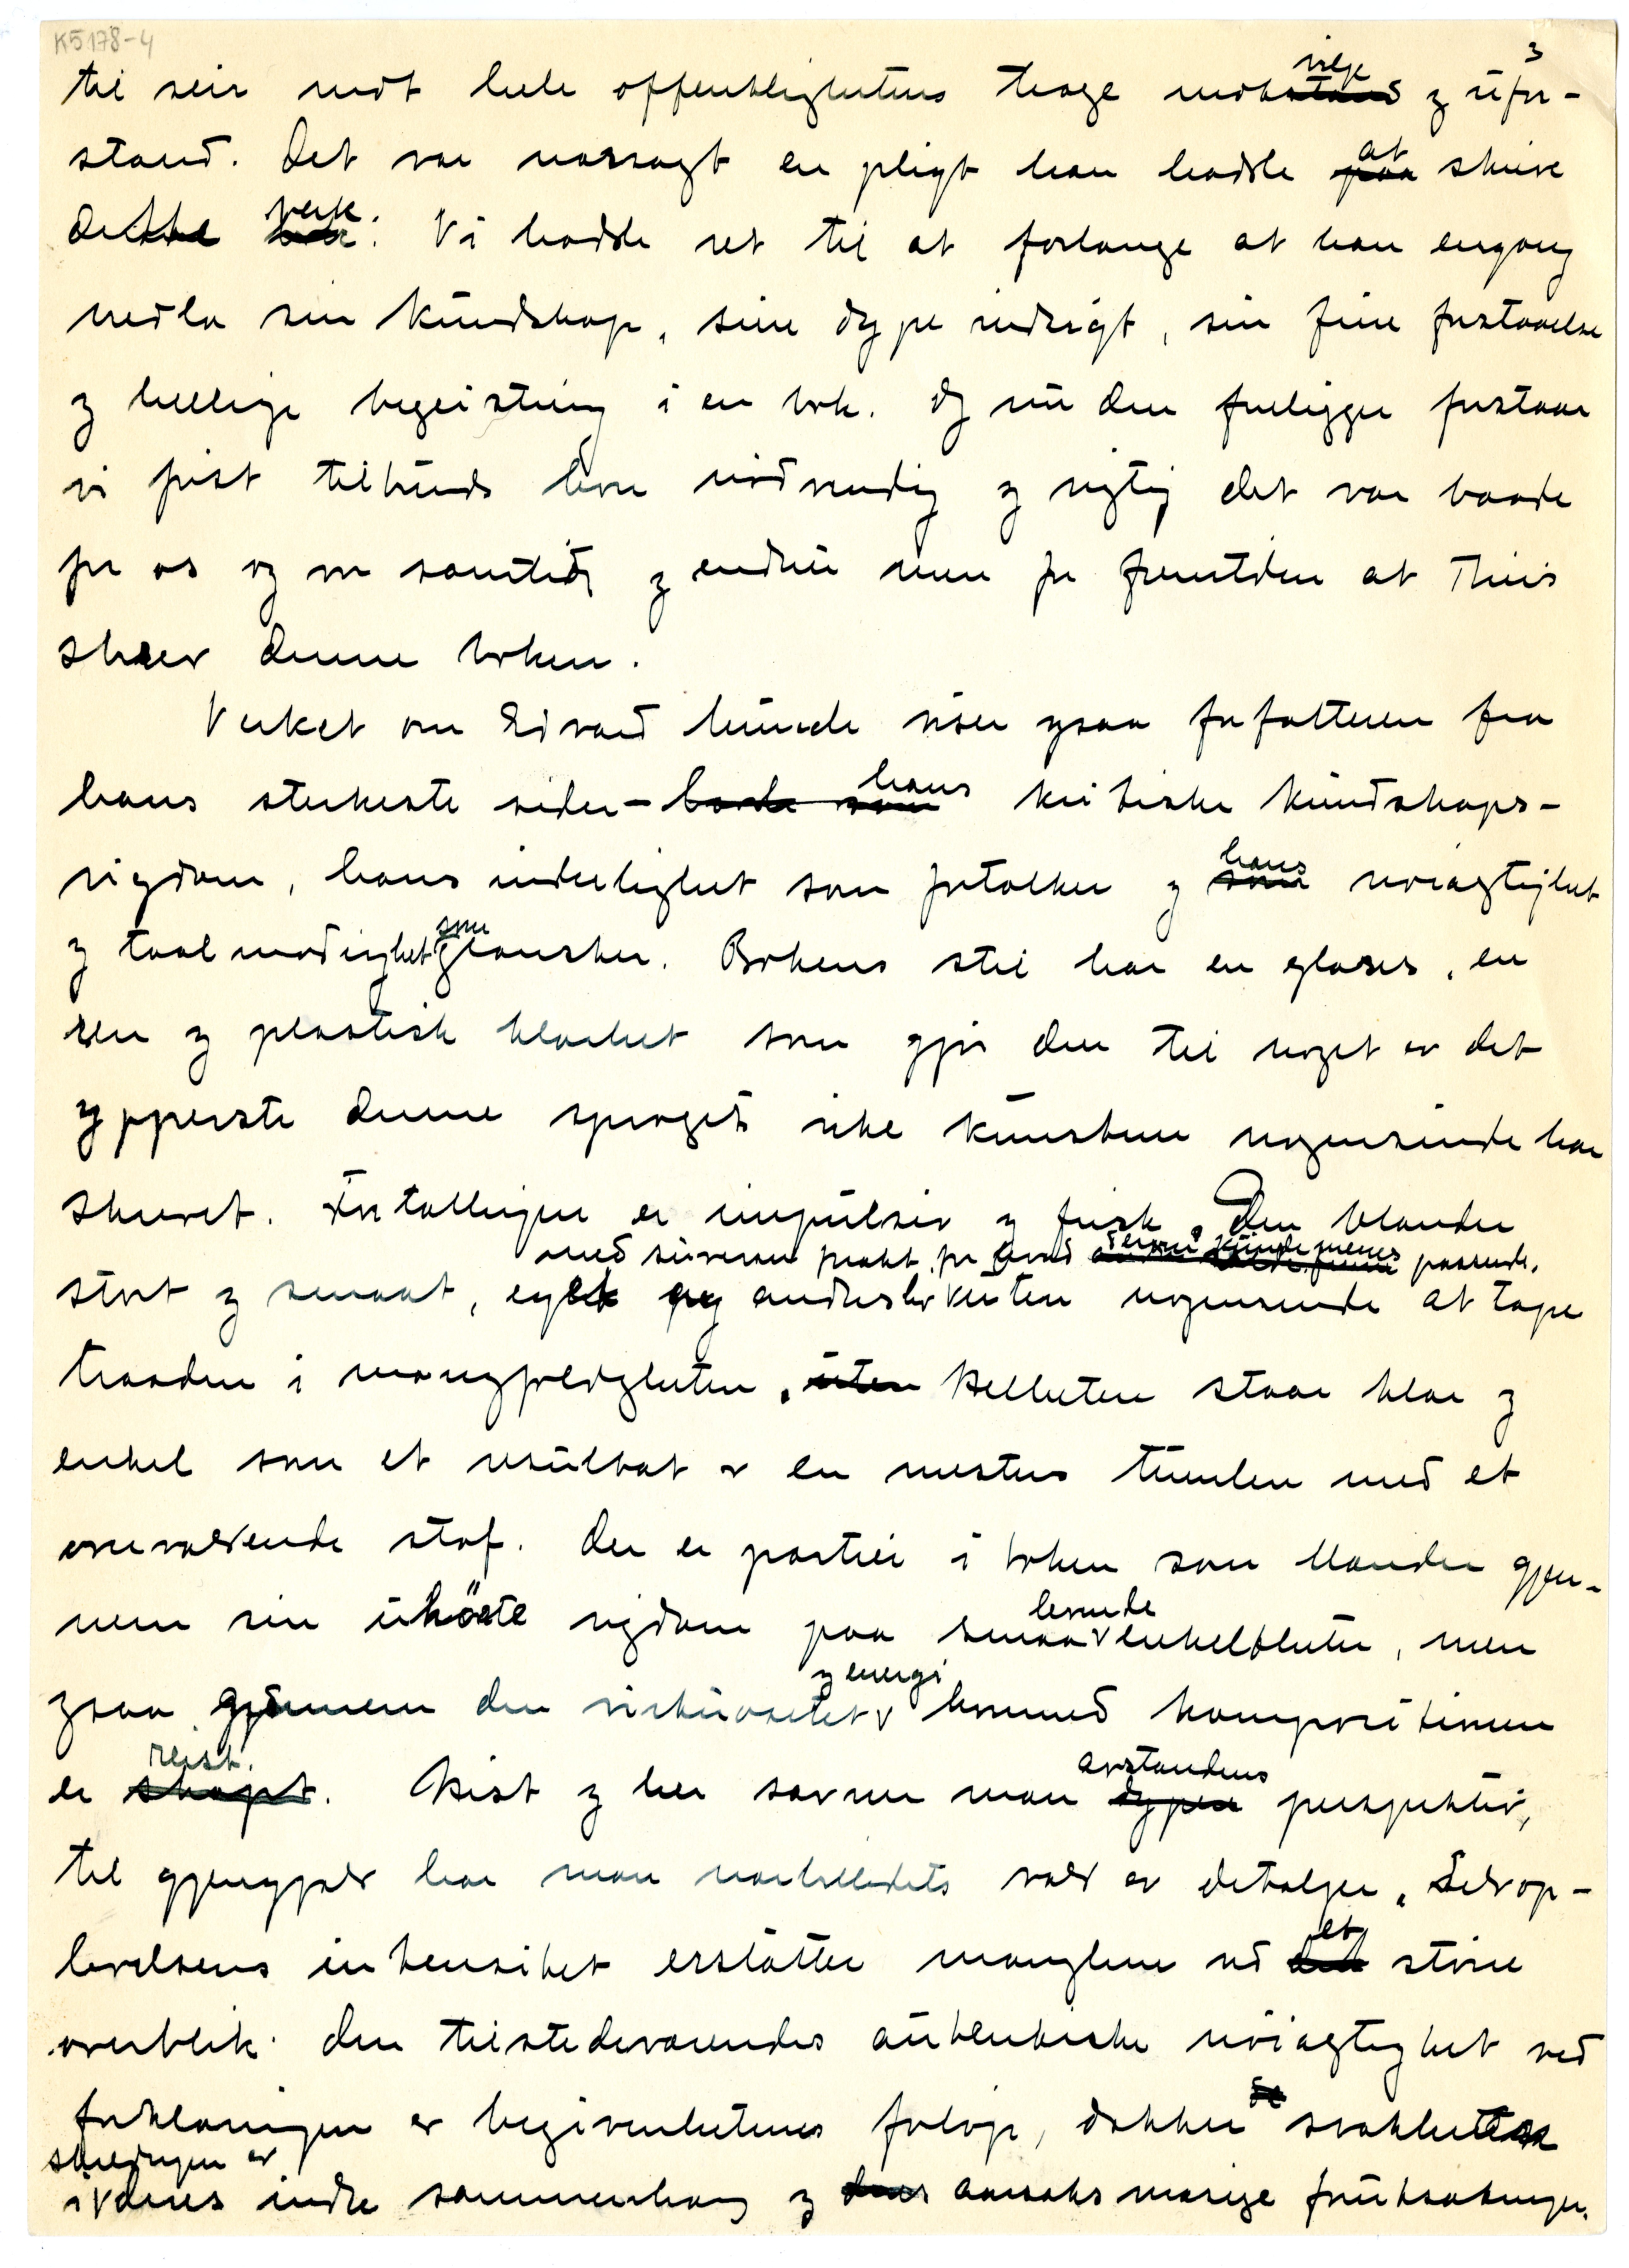 K5178-4
3
til seir mot hele offentlighetens træge motvilje og ufor-
stand. Det var naersagt en pligt han hadde at skrive
dette verk. Vi hadde ret til at forlange at han engang
nedla sin kundskap, sine dype indsigt, sin fine forstaaelse
og hellige begeistring i en bok. Og nu den foreligger forstaar
vi først tilbunds hvor nødvendig og rigtig det var baade
for os og vor samtid og endnu mer for fremtiden at Thiis
skrev denne boken.
Verket om Edvard Munch viser ogsaa forfatteren fra
hans sterkeste sider – hans kritiske kundskaps-
rigdom, hans inderlighet som fortolker og hans nøiagtighet
og taalmodighet som gransker. Bokens stil har en glans, en
ren og plastisk klarhet som gjør den til noget av det
ypperste denne sprogets rike kunstner nogensinde har
skrevet. Fortællingen er impulsiv og frisk. Den blander
med suveræn prakt, for hvad derom kunde menes passende,
stort og smaat, egelt og andres uten nogensinde at tape
traaden i mangfoldigheten. Helheten staar klar og
enkel som et resultat av en mesters tumlen med et
overvældende stof. Der er partier i boken som blænder gjen-
nem sin uhørte rigdom paa smaa levende enkeltheter, men
ogsaa gjennem den virtuositet og energi hvormed kompositionen
er reist. Visst og her savner man avstandens perspektiv,
til gjengjæld har man nærbilledets væld av detaljer. Selvop-
levelsens intensitet erstatter manglene ved et større
overblik. Den tilstedeværendes autentiske nøiagtighet ved
forklaringen av begivenhetenes forløp, dækker svakheter
i skildringen av deres indre sammenheng og aarsaksmæssige forutsætninger.